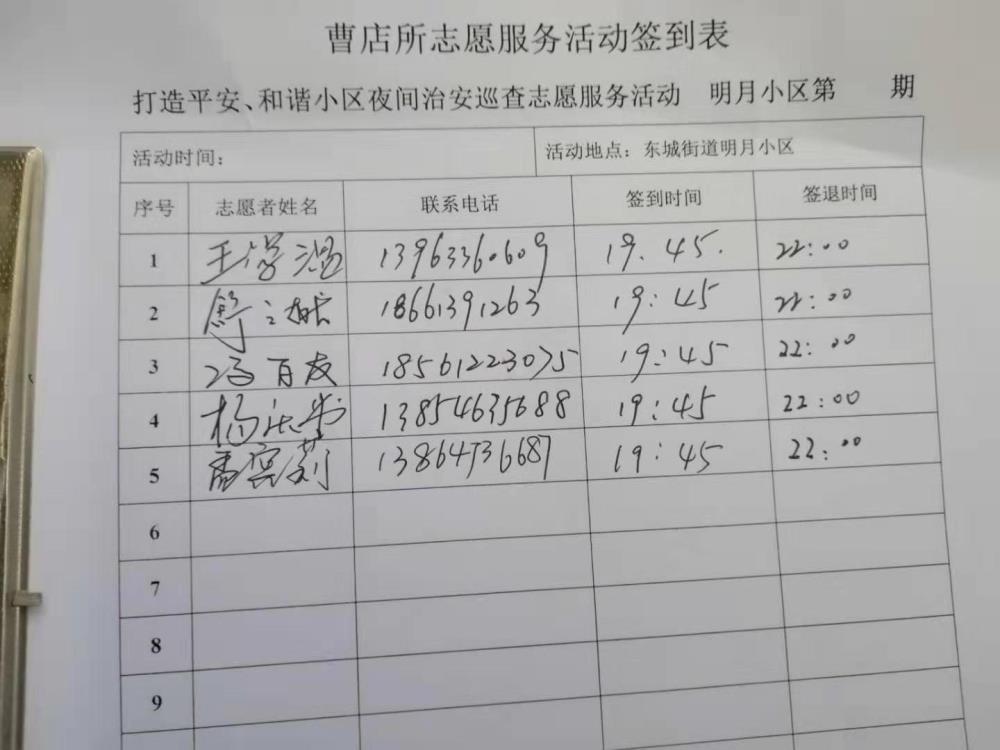 曹店所志愿服务活动签到表
打造平安、和谐小区夜间治安巡查志愿服务活动 明月小区第 期
活动时间： 活动地点：东城街道明月小区
序号 志愿者姓名 联系电话 签到时间 签退时间
1 王学温 13963360609 19:45. 22:00
2 18661391263 19:45 22:00
3 冯百友 18561223075 19:45 22:00
4 杨 13854635688 19:45 22:00
5 13864736687 19:45 22:00
6
7
8
9